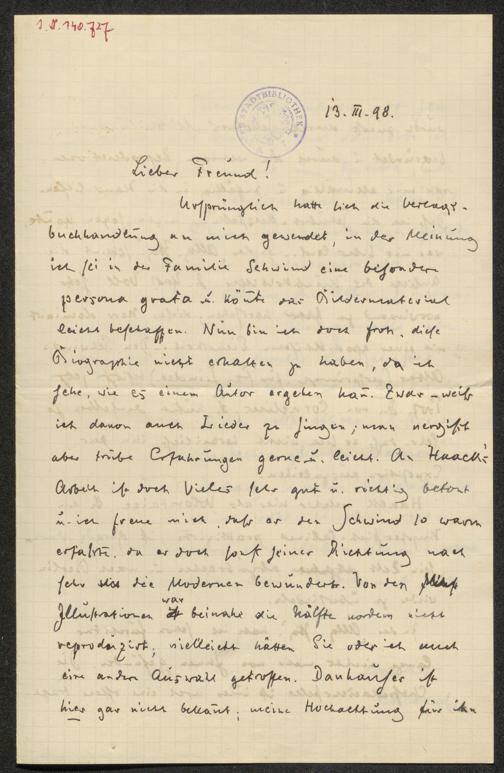 J.N. 140.727
STADTBIBLIOTHEK
13. III. 98.
Lieber Freund!
Ursprünglich hatte sich die Verlags-
buchhandlung an mich gewendet, in der Meinung
ich sei in der Familie Schwind eine besondere
persona grata u. könte das Bildermaterial
leicht beschaffen. Nun bin ich doch froh, diese
Biographie nicht erhalten zu haben, da ich
sehe, wie es einem Autor ergehen kan. Zwar weiß
ich davon auch Lieder zu singen; man vergißt
aber trübe Erfahrungen gerne u. leicht. An Haack's
Arbeit ist doch Vieles sehr gut u. richtig betont
u. ich freue mich, daß er den Schwind so warm
erfaßte, da er doch sonst seiner Richtung nach
sehr die Modernen bewundert. Von den
Illustrationen war beinahe die Hälfte vordem nicht
reproduzirt, vielleicht hätten Sie oder ich auch
eine andere Auswahl getroffen. Danhauser ist
hier gar nicht bekant; meine Hochachtung für ihn